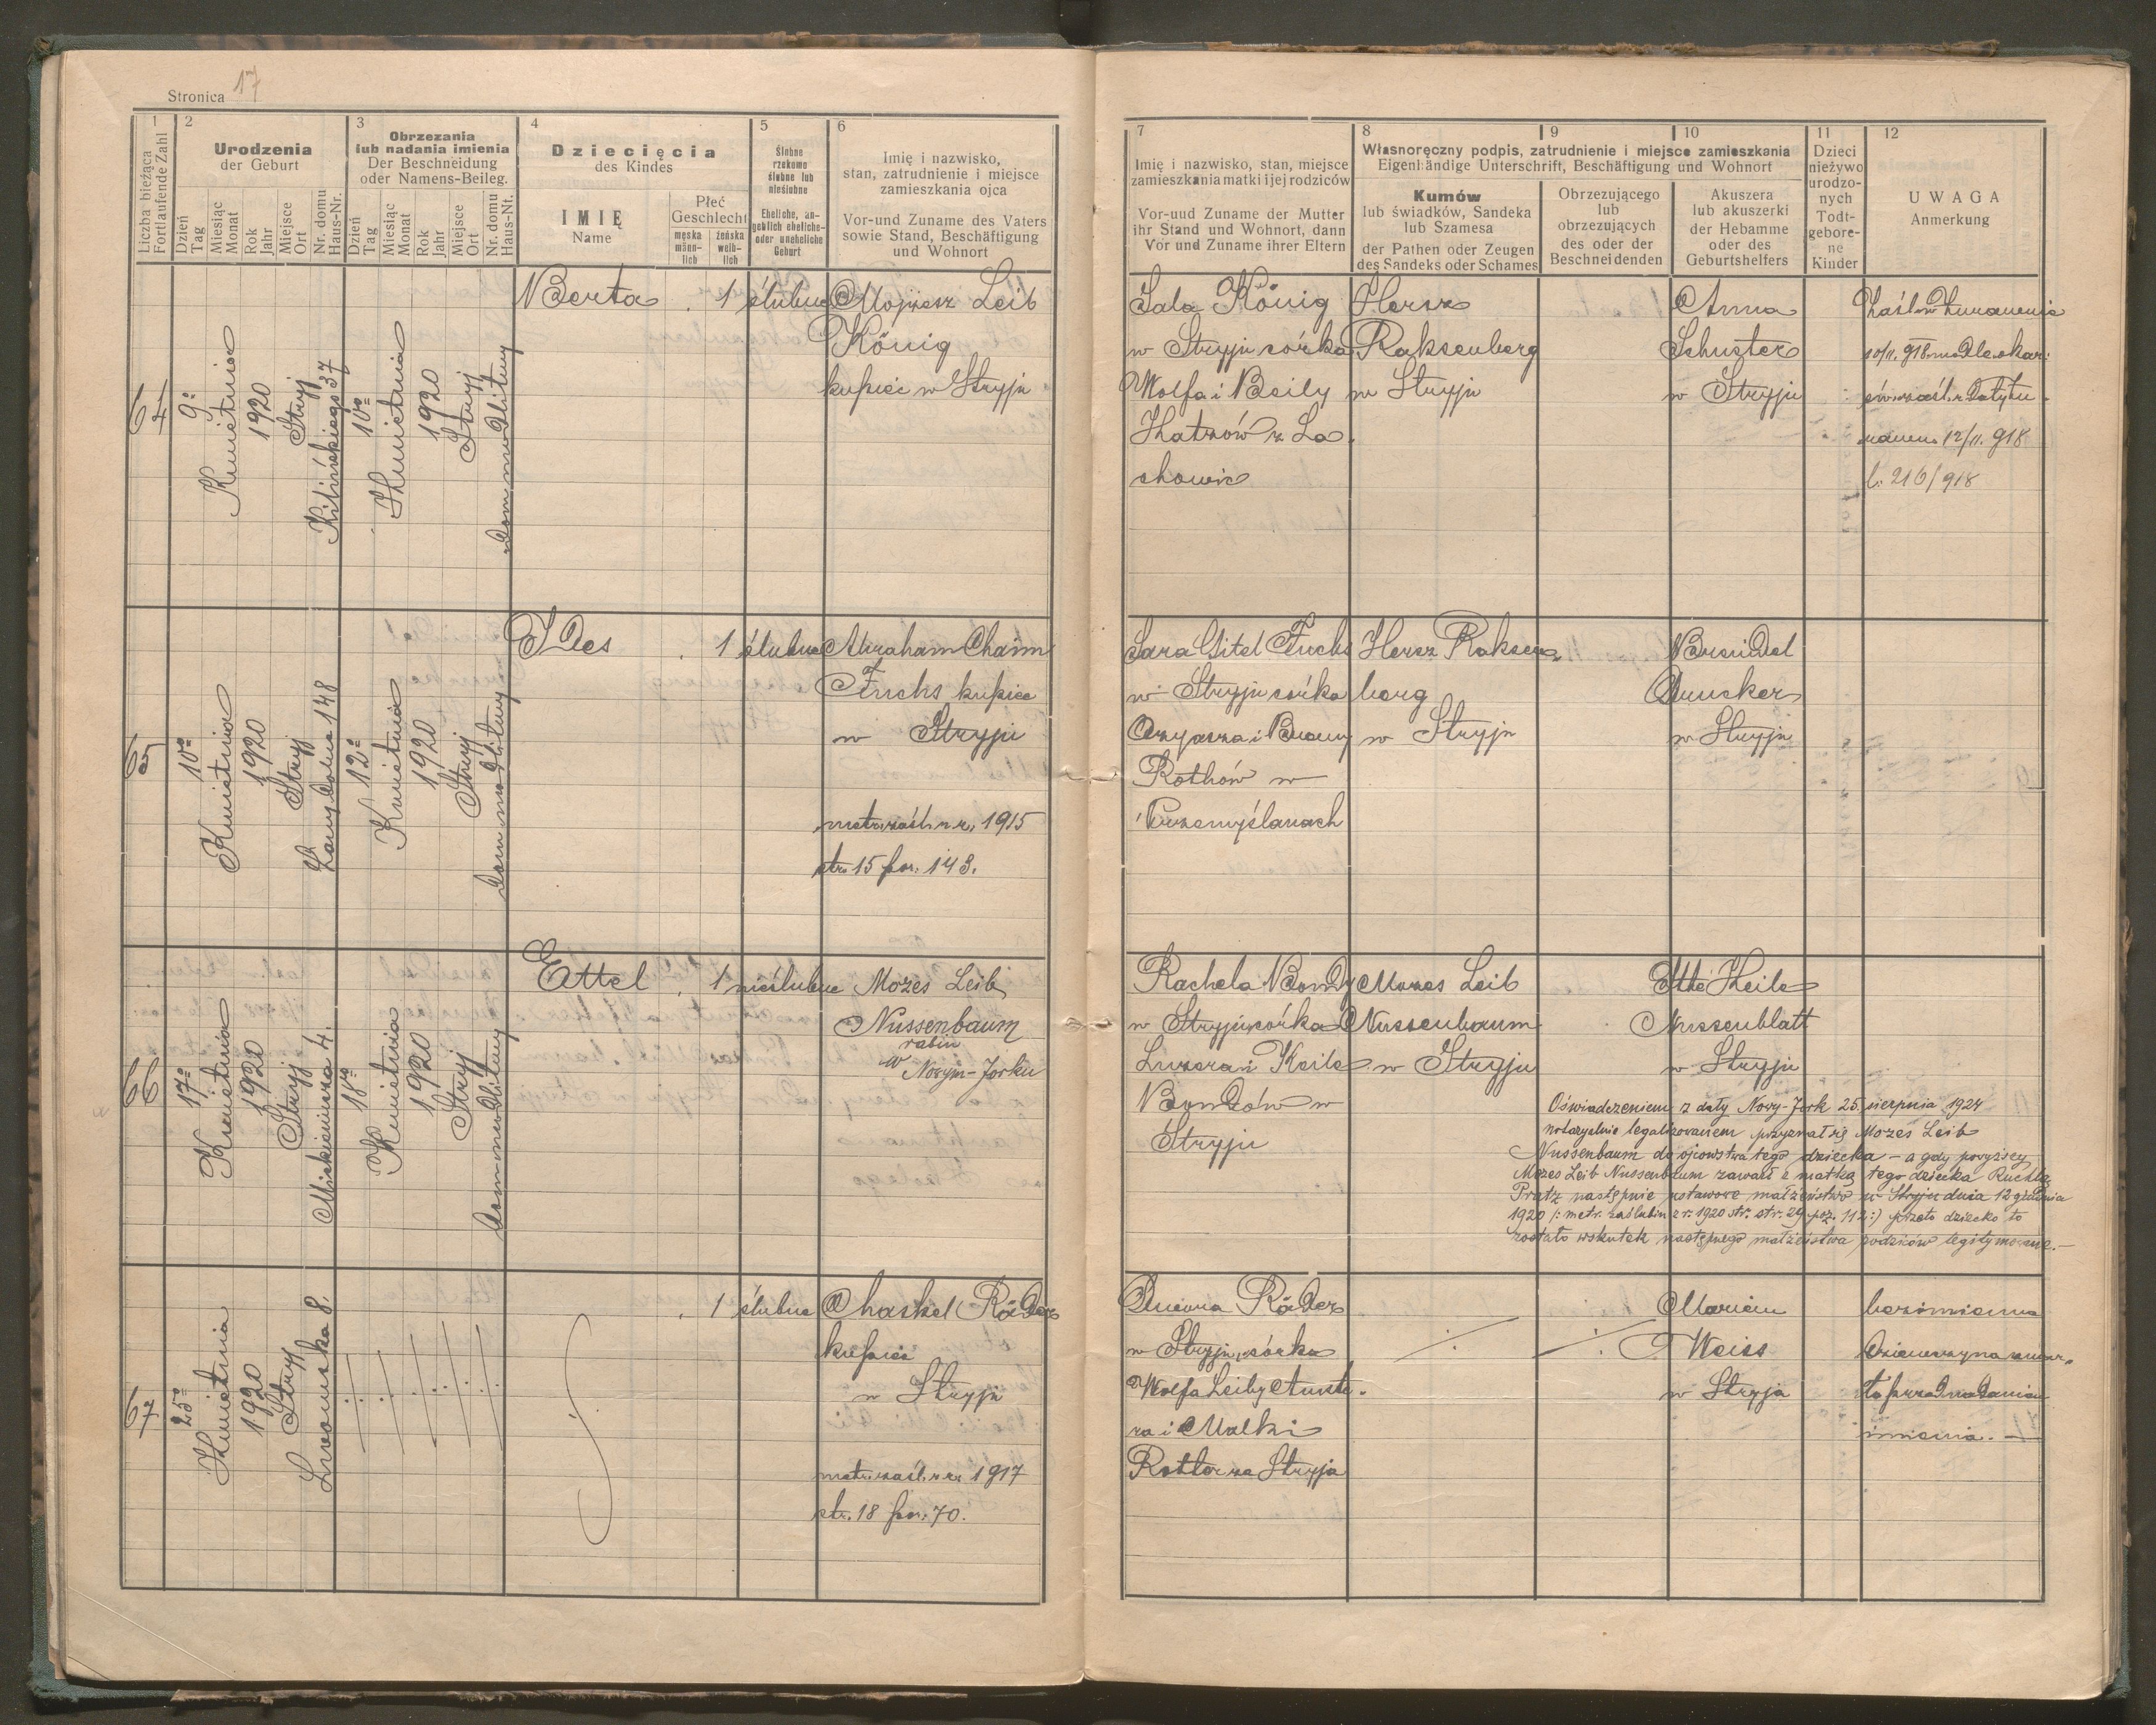 Stronica 17
1
Liczba bieżąca
Fortlaufende Zahl
2
Urodzenia
der Geburt
Dzień
Tag
Miesiąc
Monat
Rok
Jahr
Miejsce
Ort
Nr. domu
Haus-Nr.
3
Obrzezania
lub nadania imienia
Der Beschneidung
oder Namens-Beileg.
Dzień
Tag
Miesiąc
Monat
Rok
Jahr
Miejsce
Ort
Nr. domu
Haus-Nt.
4
Dziecięcia
des Kindes
IMIĘ
Name
Płeć
Geschlecht
męska
männ-
lich
żeńska
weib-
lich
5
Ślubne
rzekomo
ślubne lub
nieślubne
Eheliche, an-
geblich eheliche-
oder uneheliche
Geburt
6
Imię i nazwisko,
stan, zatrudnienie i miejsce
zamieszkania ojca
Vor-und Zuname des Vaters
sowie Stand, Beschäftigung
und Wohnort
7
Imię i nazwisko, stan, miejsce
zamieszkania matki i jej rodziców
Vor-uud Zuname der Mutter
ihr Stand und Wohnort, dann
Vor und Zuname ihrer Eltern
8
9
10
Własnoręczny podpis, zatrudnienie i miejsce zamieszkania
Eigenhändige Unterschrift, Beschäftigung und Wohnort
Kumów
lub świadków, Sandeka
lub Szamesa
der Pathen oder Zeugen
des Sandeks oder Schames
Obrzezującego
lub
obrzezujących
des oder der
Beschneidenden
Akuszera
lub akuszerki
der Hebamme
oder des
Geburtshelfers
11
Dzieci
nieżywo
urodzo-
nych
Todt-
gebore-
ne
Kinder
12
UWAGA
Anmerkung
64
9º
Kwietnia
1920
Stryj
Kilińskiego 37
10º
Kwietnia
1920
Stryj
dom modlitwy
Berta . 1 ślubne
Mojżesz Leib
König
kupiec w Stryju
Sala König
w Stryju córka
Wolfa i Beily
Katzów z La
chowic
Hersz
Raksenberg
w Stryju
Anna
Schuster
w Stryju
10/11. 918
12/11. 918
l: 216/918
65
10º
Kwietnia
1920
Stryj
Łany dolne 148
12º
Kwietnia
1920
Stryj
dom modlitwy
Ides . 1 ślubne
Abraham Chaim
Fuchs kupiec
w Stryju
metr. zaśl. z r. 1915
str. 15 poz. 143.
Sara Gitel Fuchs
w Stryju córka
Ozyasza i
Rothów w
Przemyślanach
Hersz Raksen
berg
w Stryju
Breindel
Drucker
w Stryju
66
17º
Kwietnia
1920
Stryj
Mickiewicza 4.
18º
Kwietnia
1920
Stryj
dom modlitwy
Ettel . 1 nieślubne
Mozes Leib
Nussenbaum
rabin
w Nowym-Jorku
Rachela Bondy
w Stryju, córka
Luzera i Keile
Bondów w
Stryju
Mozes Leib
Nussenbaum
w Stryju
Ette Keile
Nussenblatt
w Stryju
Oświadczeniem z daty Nowy-Jork 25. sierpnia 1924
notaryalnie legalizowanem przyznał się Mozes Leib
Nussenbaum do ojcowstwa tego dziecka - a gdy powyższy
Mozes Leib Nussenbaum zawarł z matką tego dziecka Ruchlą
Pratz następnie ustawowe małżeństwo w Stryju dnia 12 grudnia
1920 /: metr. zaślubin z r. 1920 str. str. 29 poz. 112 :/ przeto dziecko to
zostało wskutek następnego małżeństwa rodziców legitymowane. -
67
25º
Kwietnia
1920
Stryj
Lwowska 8.
. 1 ślubne
Chaskel Räder
kupiec
w Stryju
metr. zaśl. z r. 1917
str. 18 poz. 70.
Räder
w Stryju, córka
Wolfa Leiby
ra i Malki
ze Stryja
Mariem
Weiss
w Stryju
bezimienna
dziewczyna zmar-
ła przed nadaniem
imienia. -